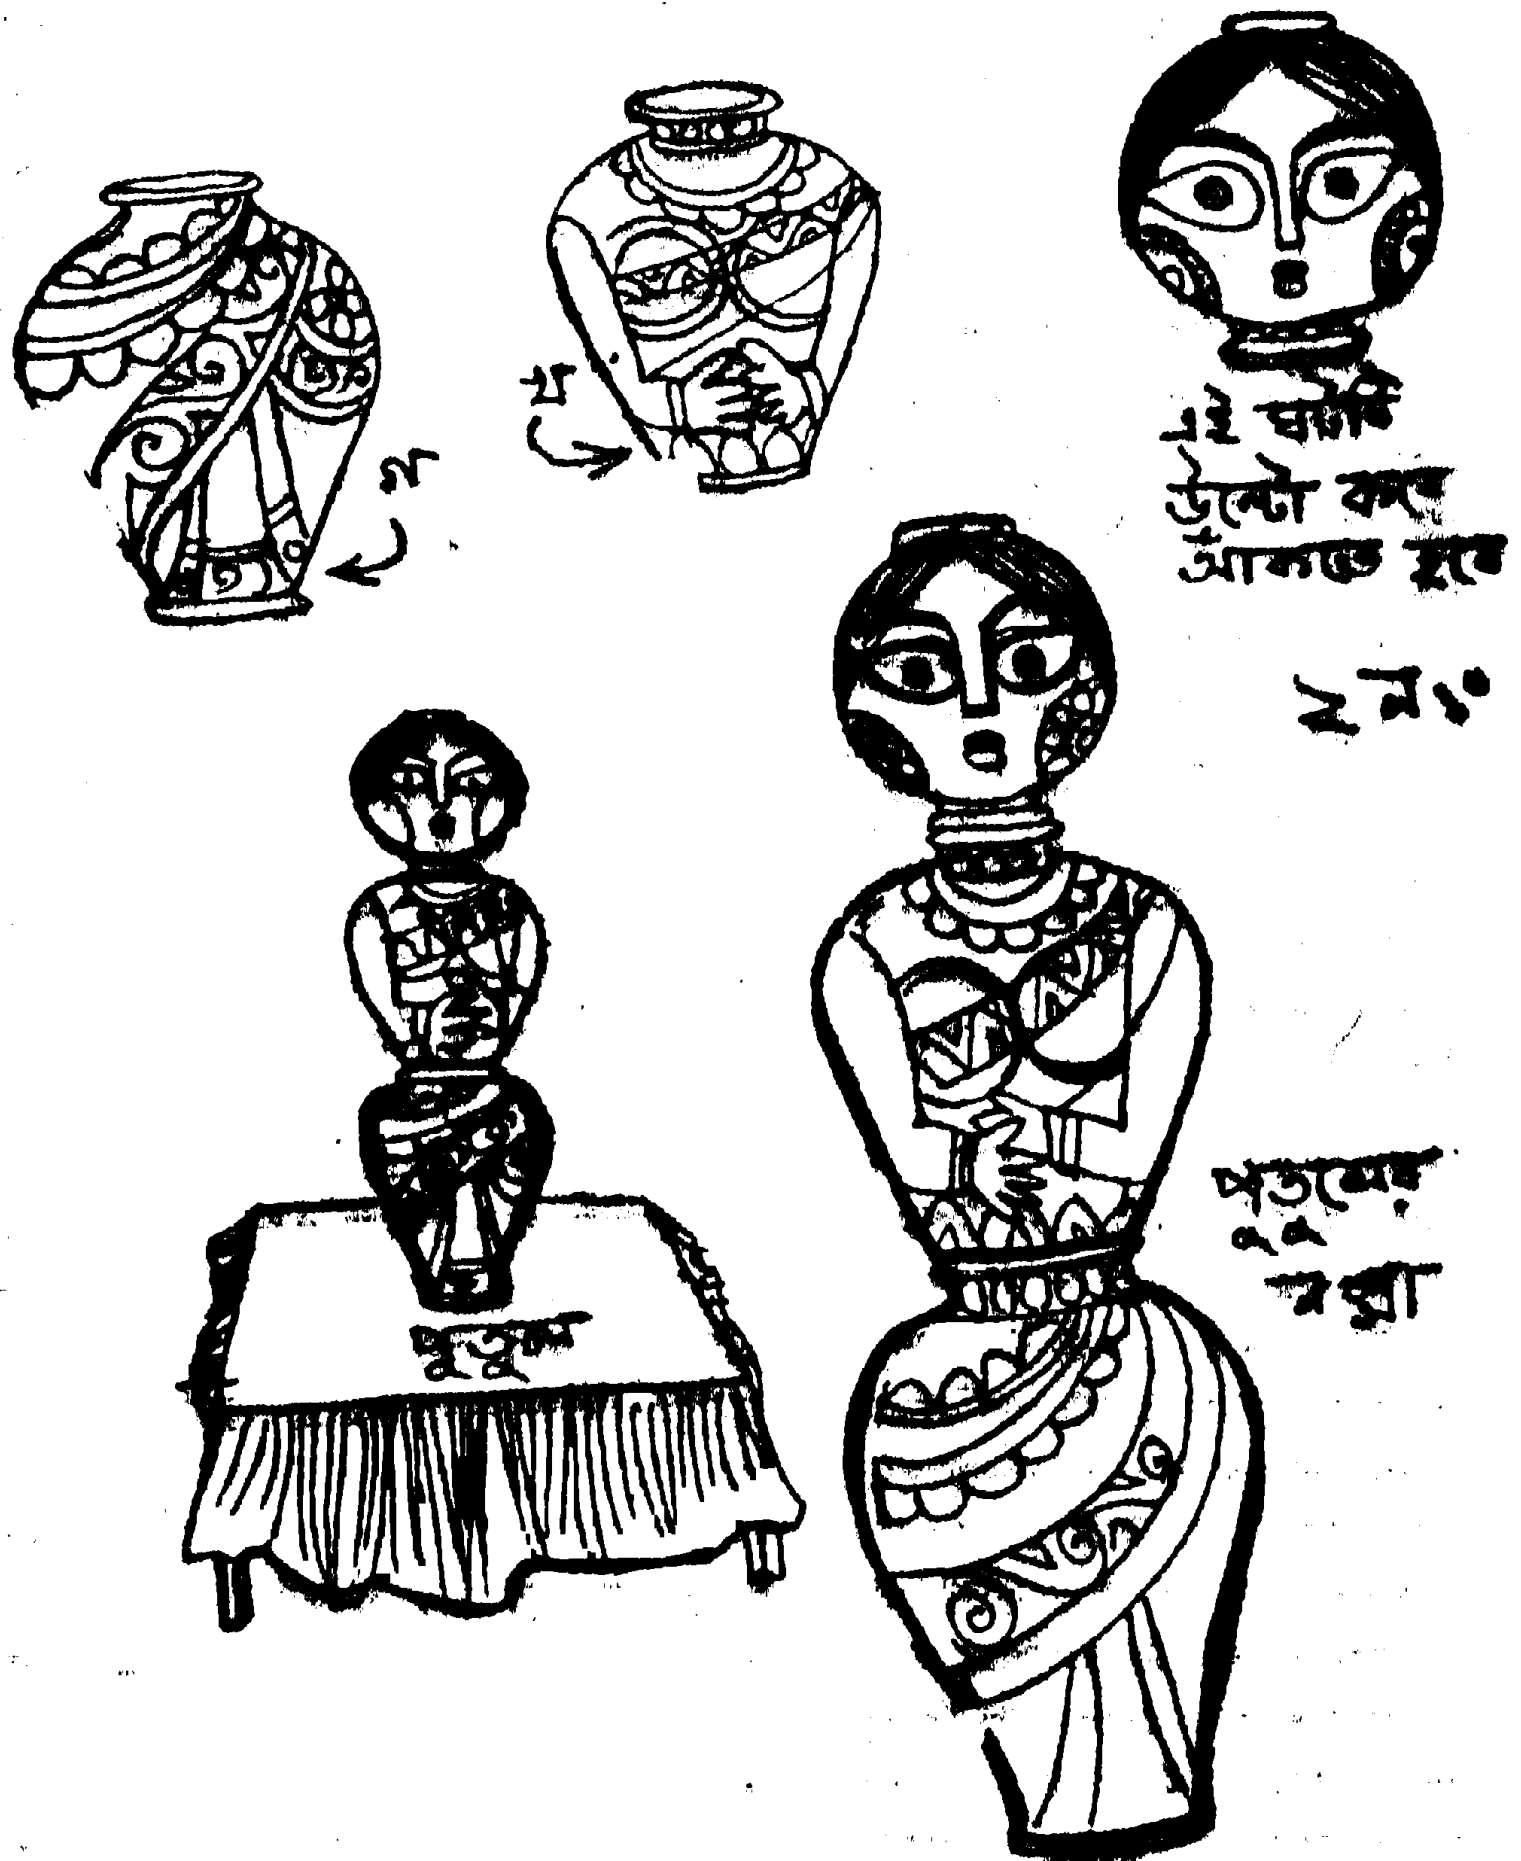 খ
গ
এই ঘটটি
উল্টো করে
আঁকতে হবে
২ নং
পুতুল
পুতুলের
নক্সা